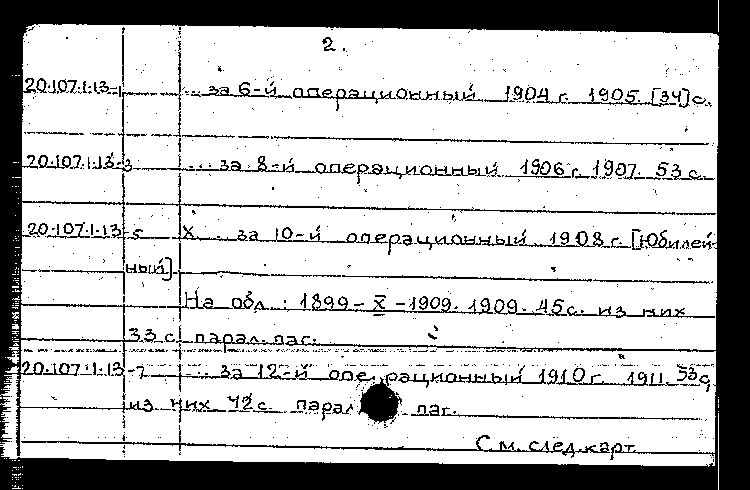 2.
20.107.1.13-1 ... за 6-й операционный 1904 г. 1905. [34] с.
20.107.1.13-3 ... за 8-й операционный 1906 г. 1907. 53 с.
20.107.1.13-5 X... за 10-й операционный 1908 г. [Юбилей-
ный]
На обл.: 1899-X-1909. 1909. 45 с. из них
33 с. парал. паг.
20.107.1.13-7 ... за 12-й операционный 1910 г. 1911. 53 с.
из них 42 с. парал. паг.
См. след. карт.